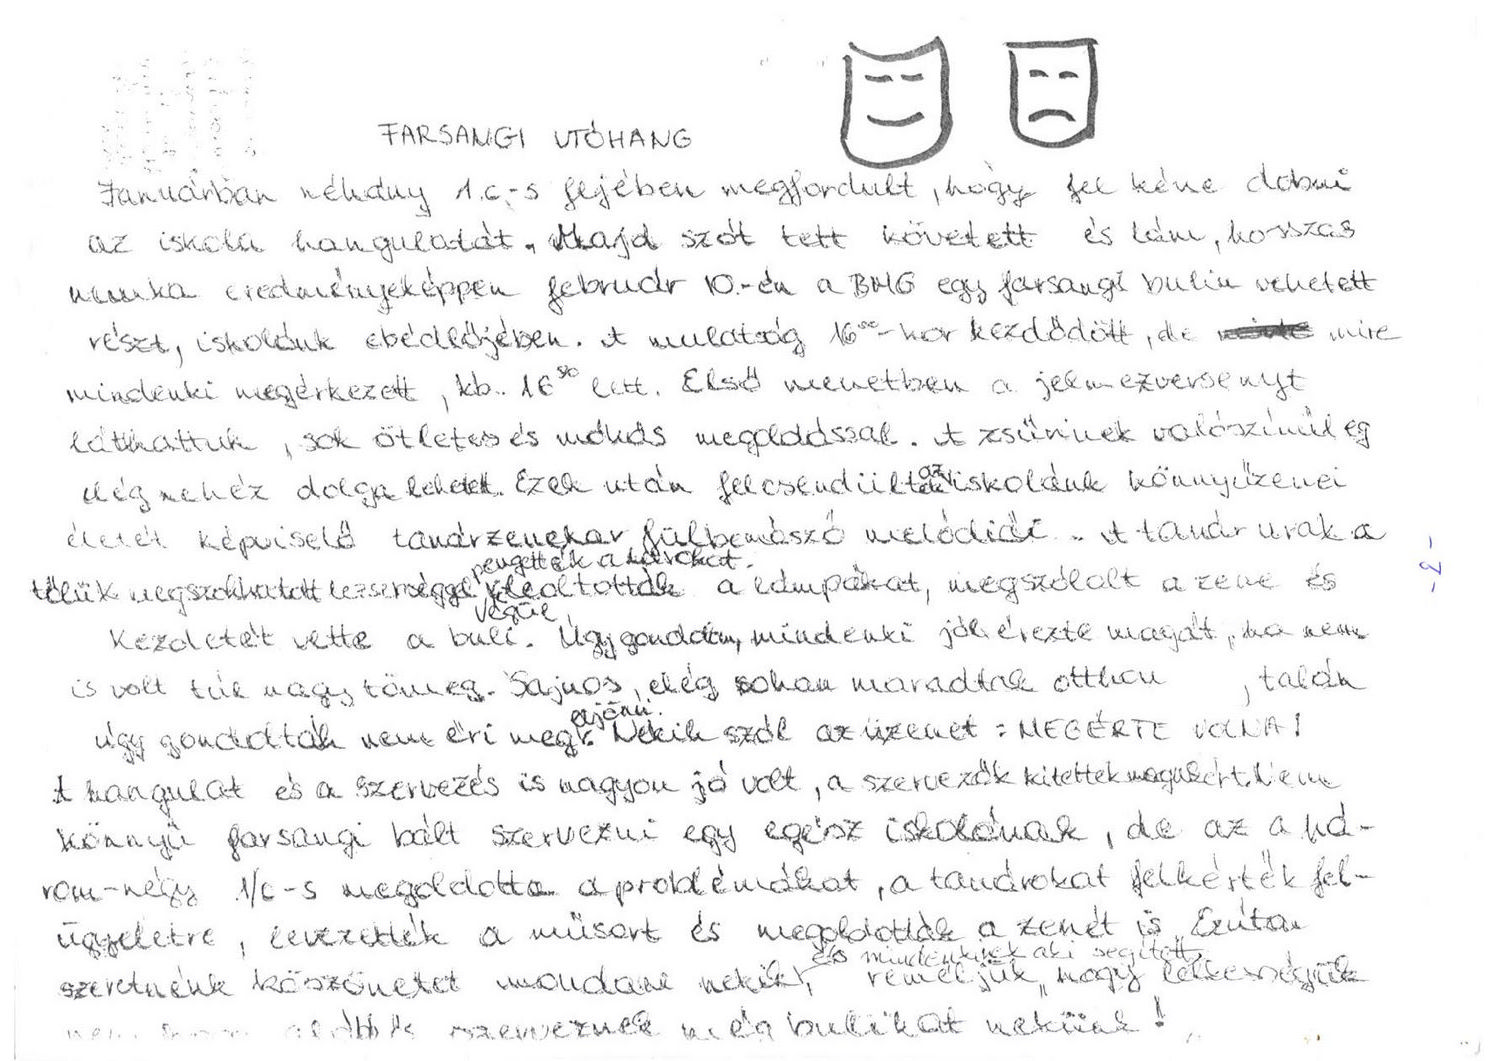 FARSANGI UTÓHANG
Januárban néhány 1.c.-s fejében megfordult, hogy fel kéne dobni
az iskola hangulatát. Majd szót tett követett és lám, hosszas
munka eredményeképpen február 10.-én a BMG egy farsangi bulin vehetett
részt, iskolánk ebédlőjében. A mulatság 16⁰⁰-kor kezdődött, de mire
mindenki megérkezett, kb. 16³⁰ lett. Első menetben a jelmezversenyt
láthattuk, sok ötletes és mókás megoldással. A zsűrinek valószínűleg
elég nehéz dolga lehetett. Ezek után felcsendültek az iskolánk könnyűzenei
életét képviselő tanárzenekar fülbemászó melódiái. A tanár urak a
tőlük megszokhatott lezserséggel pengették a húrokat.
végül leoltották a lámpákat, megszólalt a zene és
kezdetét vette a buli. Úgy gondolom, mindenki jól érezte magát, ha nem
is volt túl nagy tömeg. Sajnos, elég sokan maradtak otthon, talán
úgy gondolták nem éri meg eljönni. Nekik szól az üzenet: MEGÉRTE VOLNA!
A hangulat és a szervezés is nagyon jó volt, a szervezők kitettek magukért. Nem
könnyű farsangi bált szervezni egy egész iskolának, de az a há-
rom-négy 1/c-s megoldotta a problémákat, a tanárokat felkérték fel-
ügyeletre, levezették a műsort és megoldották a zenét is. Ezúton
szeretnénk köszönetet mondani nekik, és mindenkinek aki segített, reméljük, hogy lelkesedésük
nem szerveznek még bulikat nekünk!
-2-